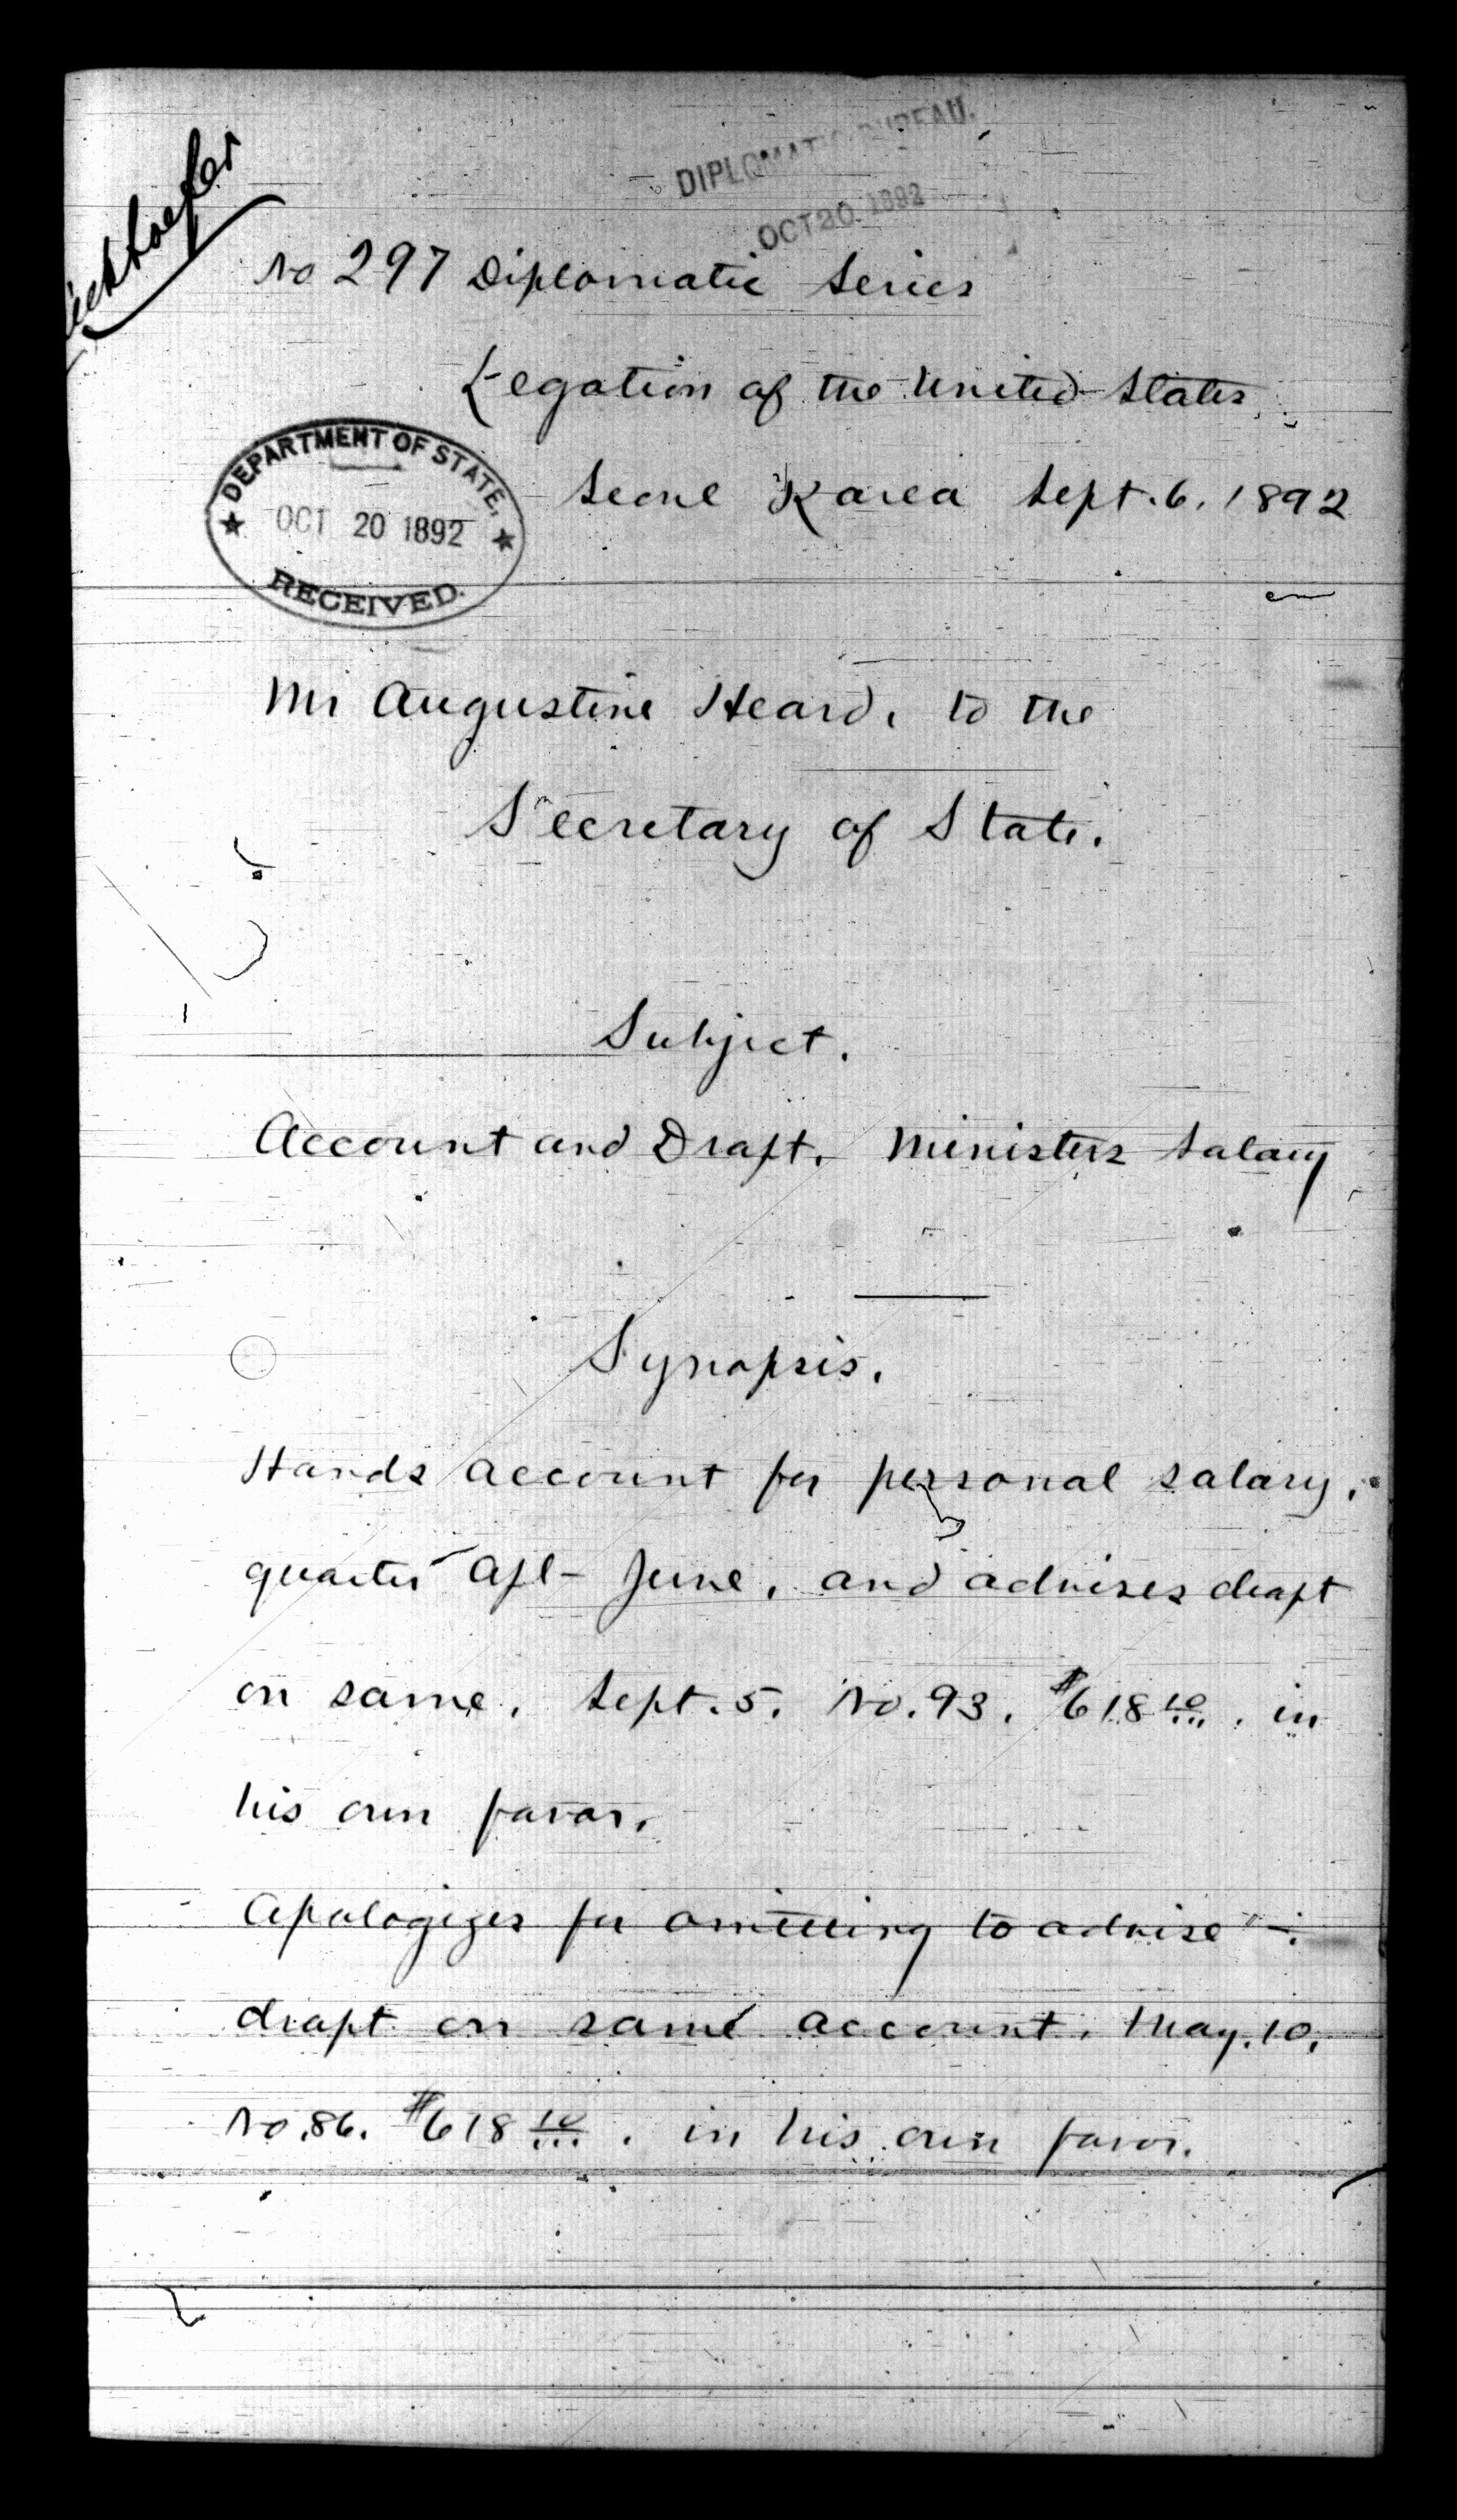 DIPLOMATIC BUREAU.
OCT 20 1892
No 297 Diplomatic Series
Legation of the United States
Seoul Korea Sept. 6. 1892
DEPARTMENT OF STATE,
OCT 20 1892
RECEIVED.
Mr Augustine Heard, to the
Secretary of State.
Subject.
Account and Draft. Ministers Salary
Synopsis.
Hands account for personal salary,
quarter Apl - June, and advises draft
on same, Sept. 5. No. 93. $618 10/... . in
his own favor.
Apologizes for omitting to advise
draft on same account, May. 10,
No. 86. $618 10/... . in his own favor.